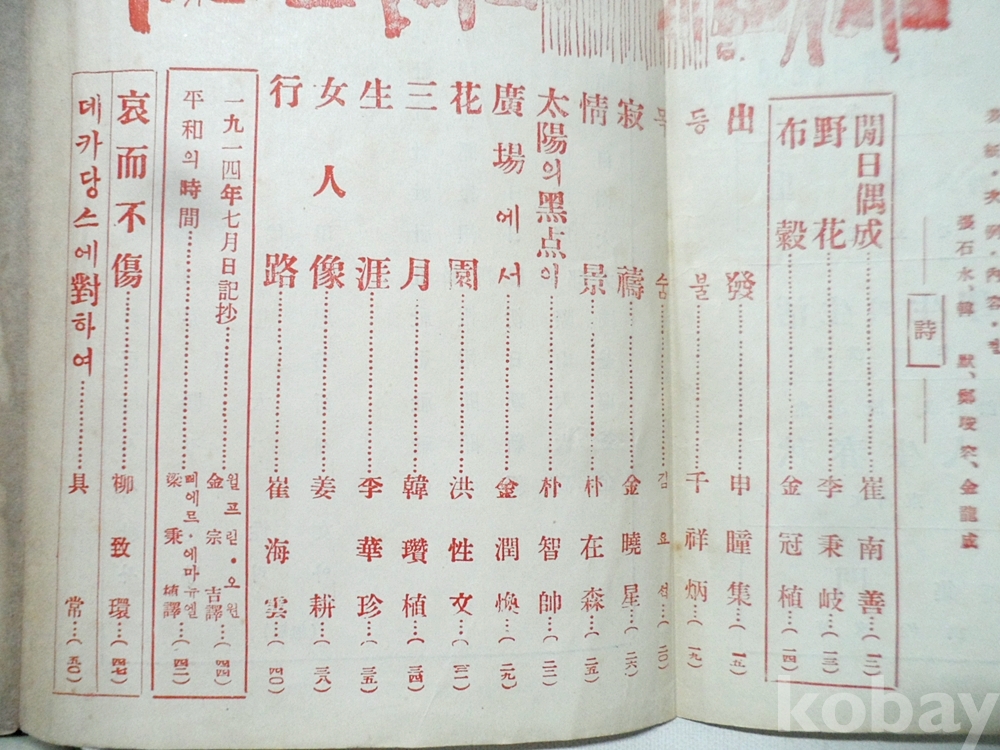 張石水、韓 默、鄭㻐突、金龍成
詩
閒日偶成……崔南善…(一二)
野花……李秉岐…(一三)
布穀……金冠植…(一四)
出發……申瞳集…(一五)
등불……千祥炳…(一九)
목숨……김요섭…(二〇)
寂禱……金曉星…(二六)
情景……朴在森…(二五)
太陽의黑点이……朴智帥…(二三)
廣場에서……金潤煥…(二九)
花園……洪性文…(三二)
三月……韓瓚植…(三四)
生涯……李華珍…(三五)
女人像……姜敏耕…(三八)
行路……崔海雲…(四〇)
一九一四年七月日記抄……윌프린·오웬 金宗吉譯…(四四)
平和의時間……삐에르·에마뉴엘 梁秉埴譯…(四二)
哀而不傷……柳致環…(四七)
데카당스에對하여……具常…(五〇)
kobay